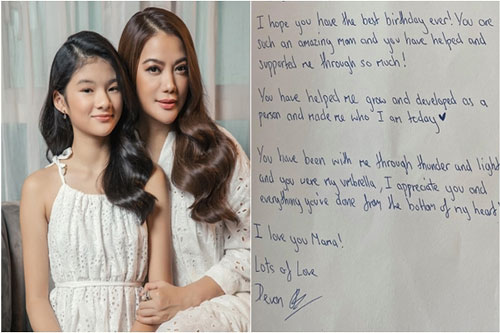 I hope you have the best birthday ever! You are
such an amazing mom and you have helped and
supported me through so much!
You have helped me grow and developed as a
person and made me who I am today♥
You have been with me through thunder and light
and you were my umbrella, I appreciate you and
everything you've done from the bottom of my heart
I love you Mama!
Lots of Love
Devon